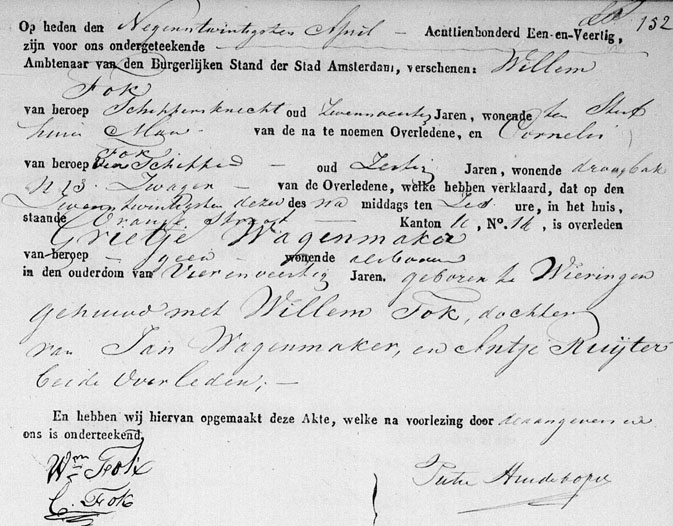 152
Op heden den Negenentwintigsten April – Achttienhonderd Een-en-Veertig,
zijn voor ons ondergeteekende
Ambtenaar van den Burgerlijken Stand der Stad Amsterdam, verschenen: Willem
Fok
van beroep Schippersknecht oud Zevenveertig Jaren, wonende ten
huize Man – van de na te noemen Overledene, en Cornelis
Fok
van beroep Schipper – oud Zestig Jaren, wonende draagbak
N 13. Zwager – van de Overledene, welke hebben verklaard, dat op den
dezer des na middags ten Zes ure, in het huis,
staande Oranje Straat – Kanton 11, No. 14, is overleden
Grietje Wagenmaker
van beroep – geen – wonende aldaar
in den ouderdom van Vierenveertig Jaren. geboren te Wieringen
gehuwd met Willem Fok, dochter
van Jan Wagenmaker, en Antje Ruijter
beide Overleden; –
En hebben wij hiervan opgemaakt deze Akte, welke na voorlezing door de aangevers en
ons is onderteekend.
Wm Fok
C. Fok